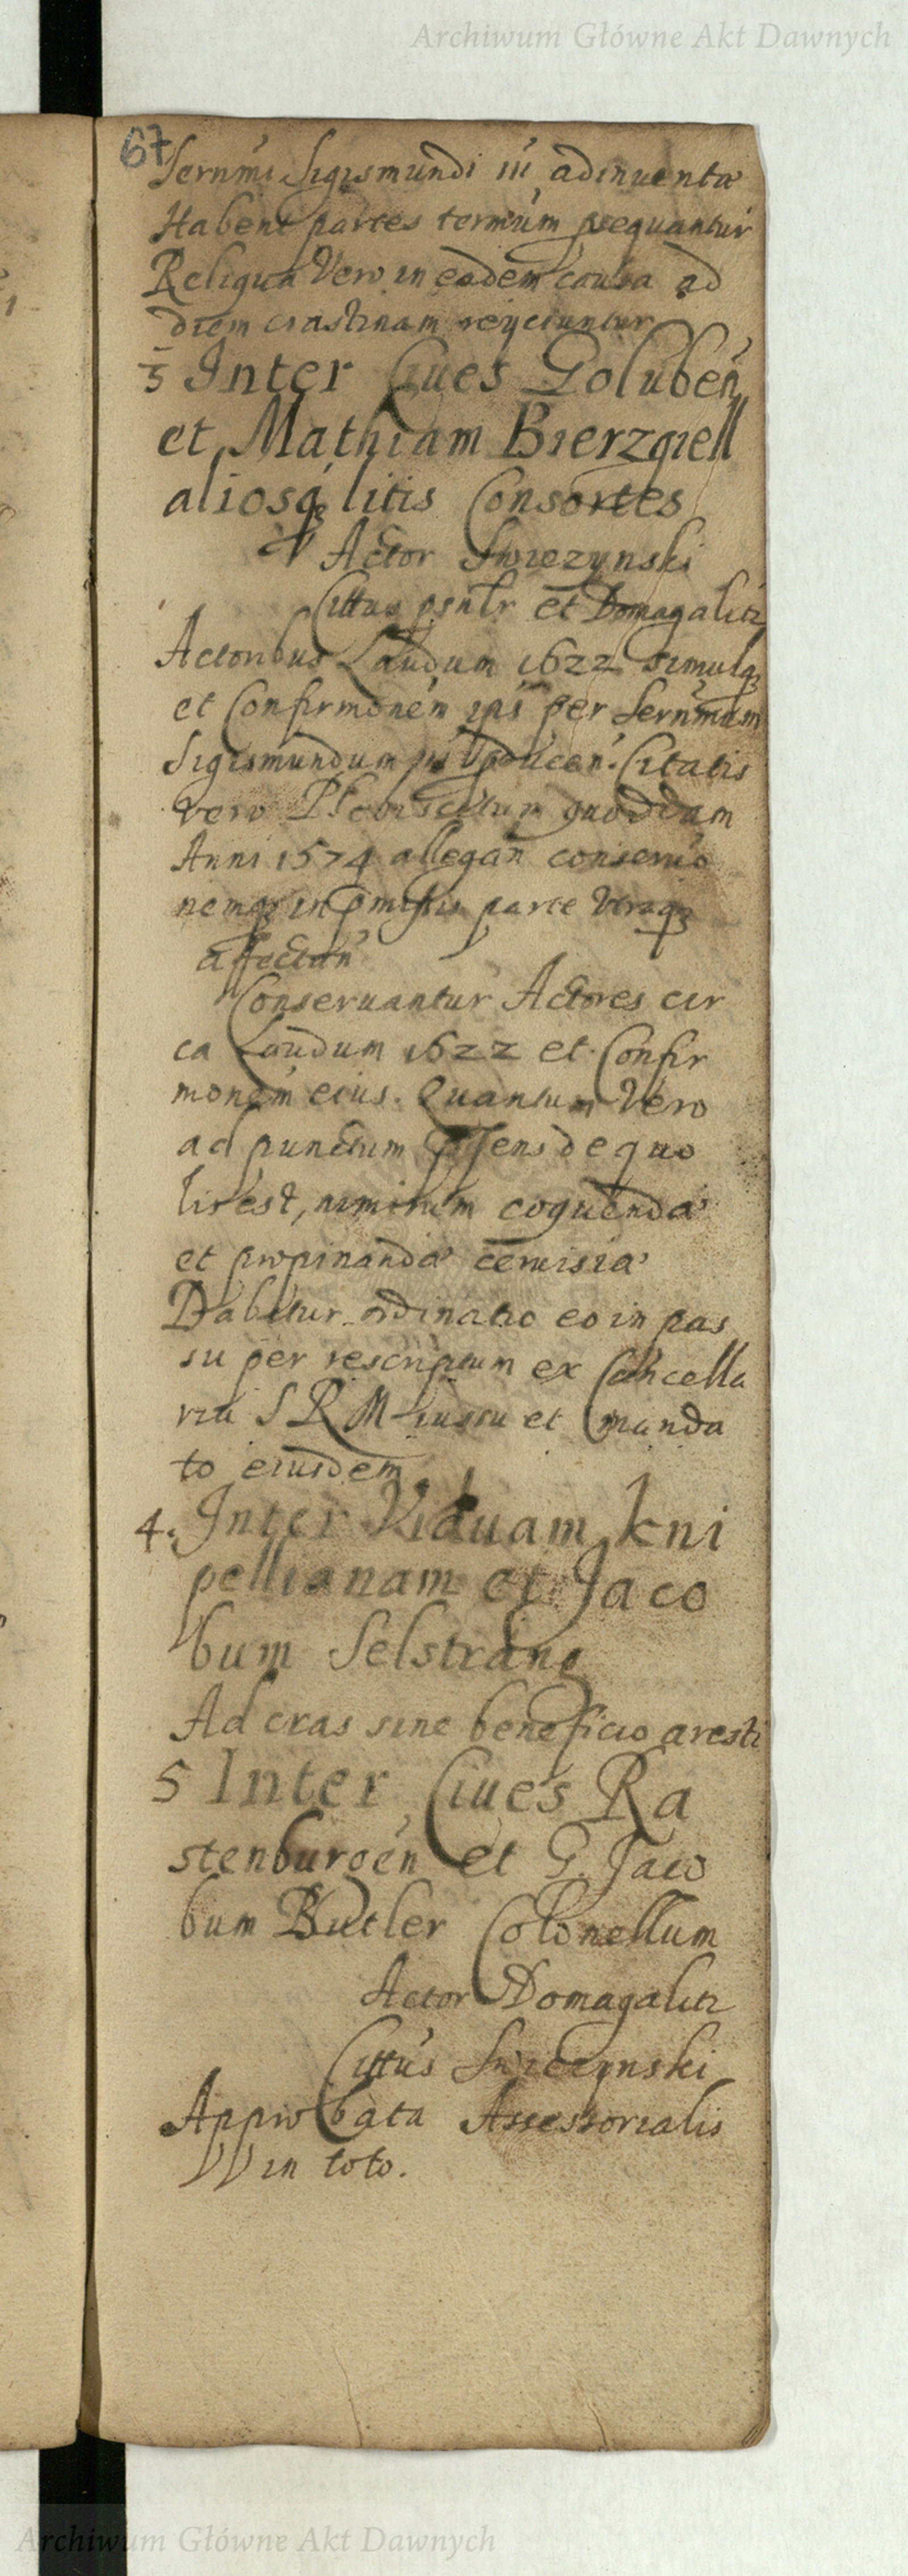 Archiwum Główne Akt Dawnych
67
Sernmi Sigismundi iii adinventa
Habent partes termum psequantur
Reliqua Vero in eadem causa ad
diem crastinam reÿciuntur
3 Inter Ciues Goluben
et Mathiam Bierzgiell
aliosq litis Consortes
Actor Swiezynski
Cittus psnlr et Domagalitz
Actoribus Laudum 1622 simulq
et Confirmonem ipi per Sernmum
Sigismundum producen. Citatis
vero Plebiscitum quoddam
Anni 1574 allegan conseruo
nemq in pmissis parte Utraq
affectan
Conseruantur Actores cir
ca Laudum 1622 et Confir
monem eius. Quantum Vero
ad punctum psens de quo
lis est, nimirum coquenda
et propinanda ceruisia
Dabitur ordinatio eo in pas
su per rescriptum ex Cancella
ria S R M iussu et manda
to eiusdem
4. Inter Viduam Kni
pellianam et Jaco
bum Selstrang
Ad cras sine beneficio aresti
5 Inter Ciues Ra
stenburgen et G. Jaco
bum Butler Colonellum
Actor Domagalitz
Cittus Swiezynski
Approbata Assessorialis
in toto.
Archiwum Główne Akt Dawnych